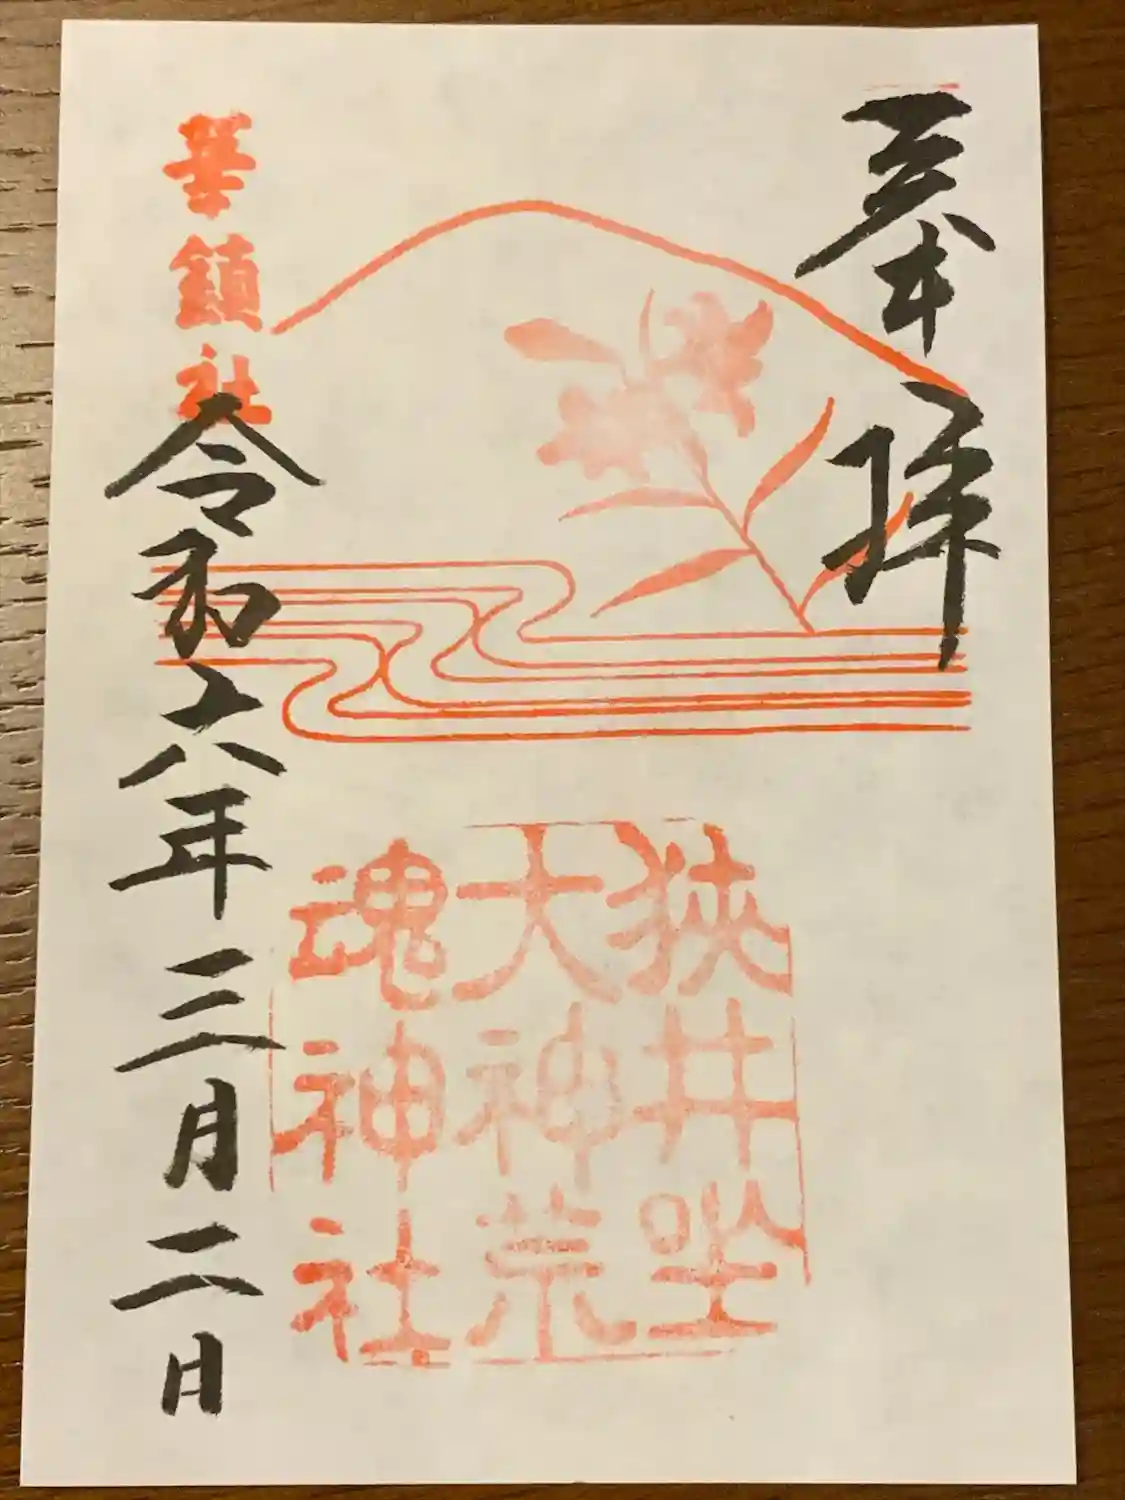 奉拝
狭井坐
大神荒
魂神社
華鎮社
令和六年三月二日